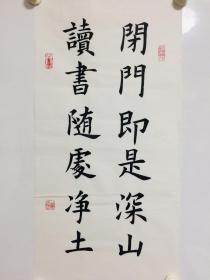 閉門即是深山
讀書随處净土